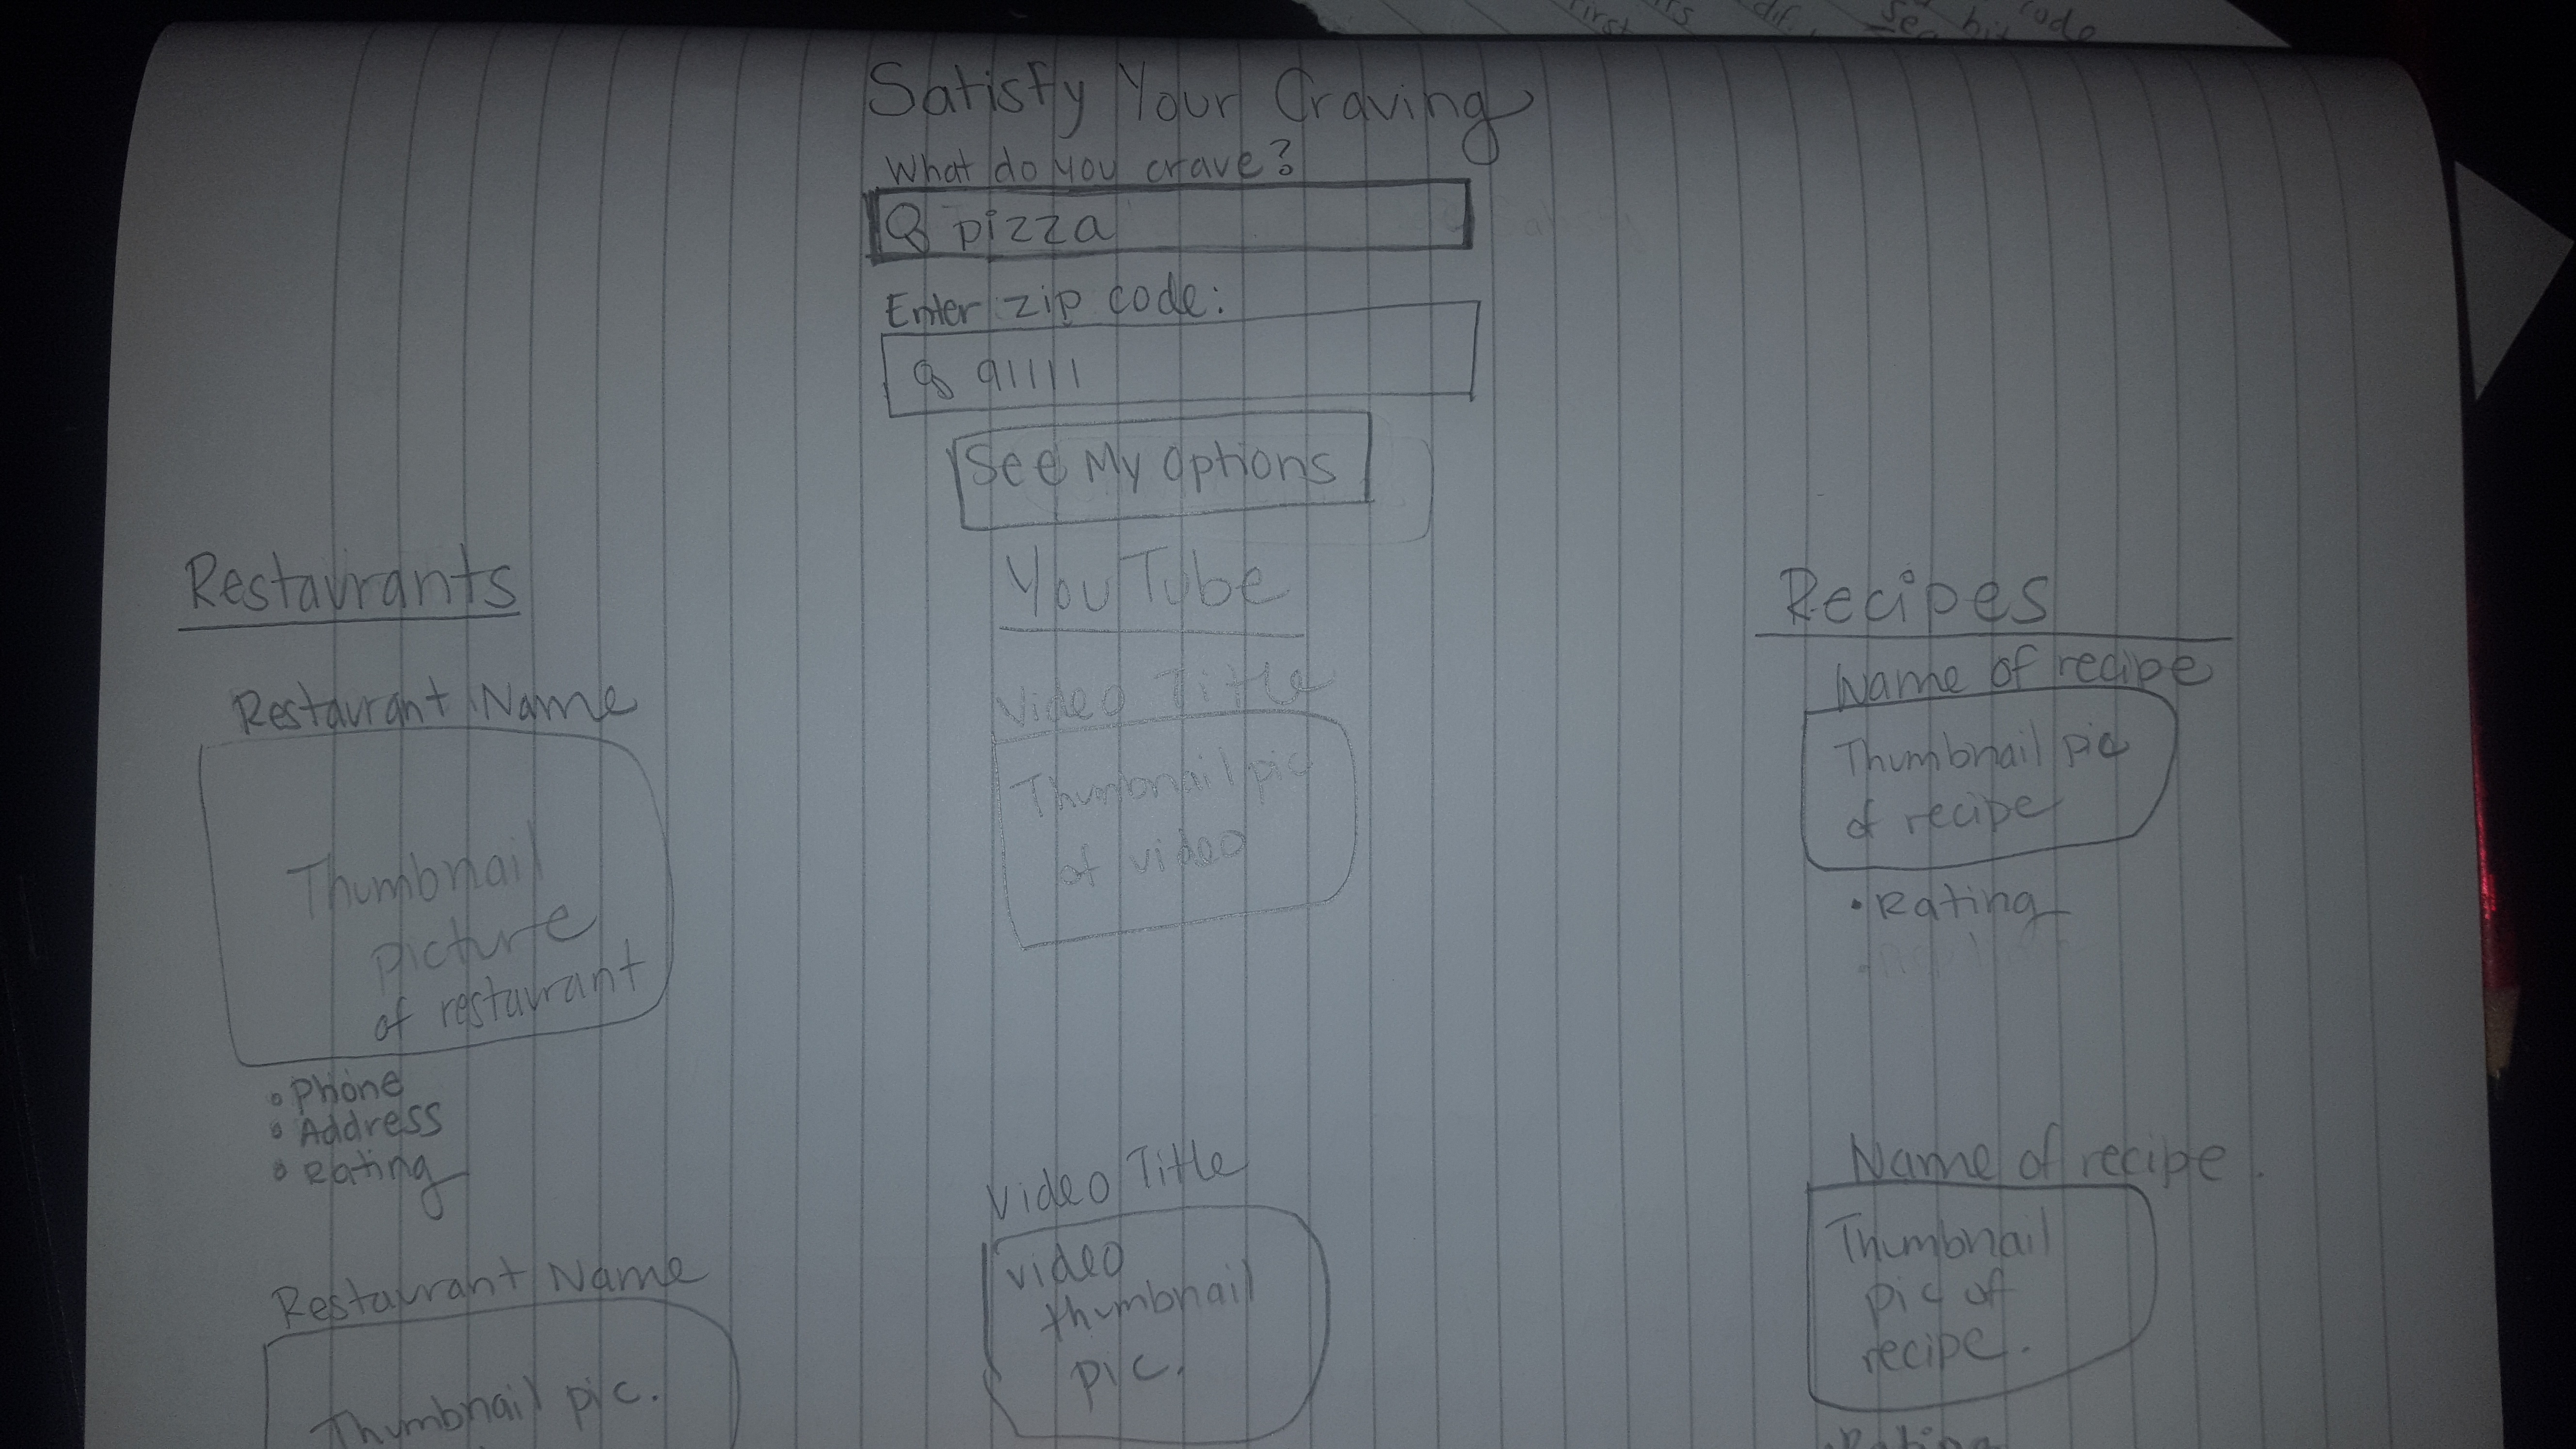 first
dif.
bit
code
Satisfy Your Craving
What do you crave?
pizza
Enter zip code:
91111
See My Options
Restaurants
Restaurant Name
Thumbnail
picture
of restaurant
• Phone
• Address
• Rating
Restaurant Name
Thumbnail pic.
YouTube
Video Title
Thumbnail pic
of video
Video Title
video
thumbnail
pic.
Recipes
Name of recipe
Thumbnail pic
of recipe
• Rating
Name of recipe.
Thumbnail
pic of
recipe.
Rating